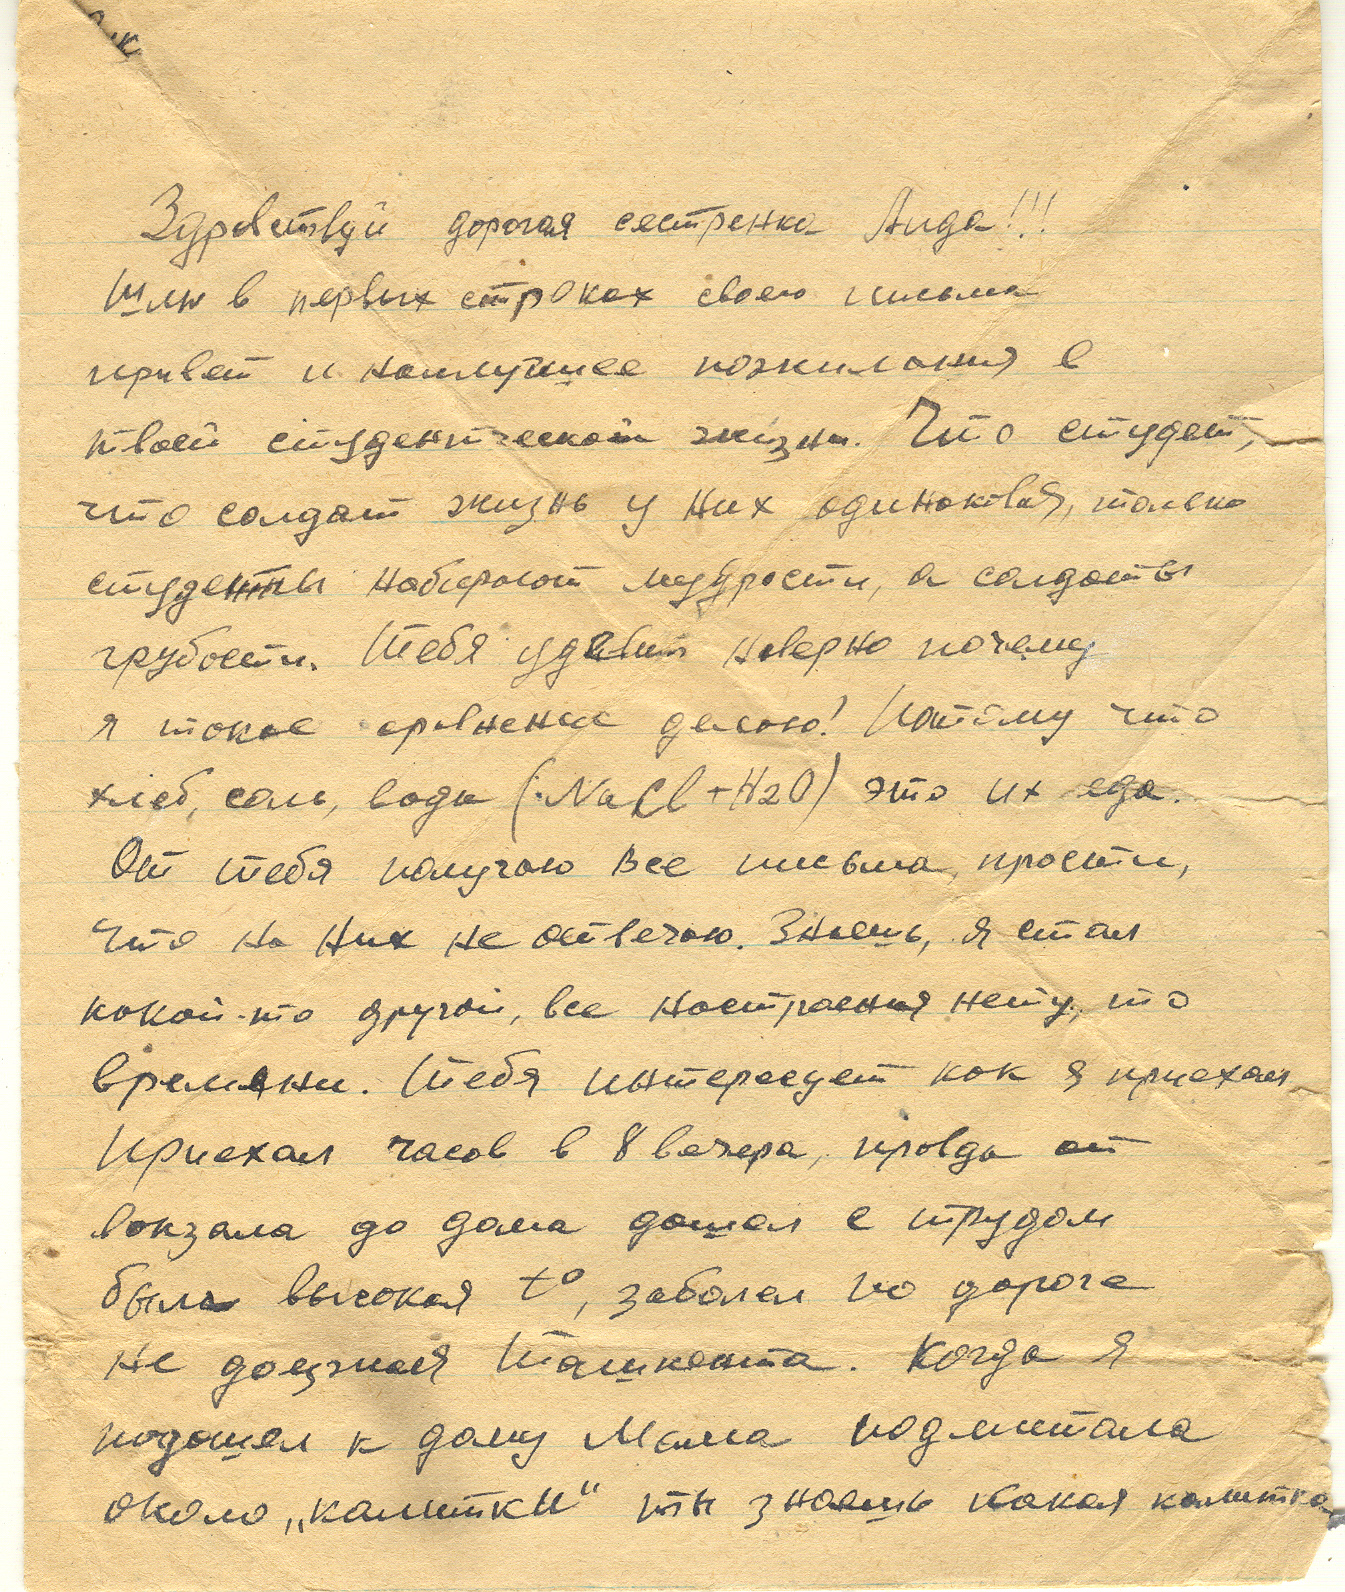 Здравствуй дорогая сестренка Аида!!!
Шлю в первых строках своего письма
привет и наилучшее пожилания в
твоей студентческой жизни. Что студент,
что солдат жизнь у них одинаковая, только
студенты набирают мудрости, а солдаты
грубости. Тебя удивит наверно почему
я такое сравнение делаю! Потому что
хлеб, соль, вода (NaCl + H2O) это их еда.
От тебя получаю все письма, прости,
что на них не отвечаю. Знаешь, я стал
какой-то другой, все настроения нету, то
времени. Тебя интересует как я приехал
Приехал часов в 8 вечера, правда от
вокзала до дома дошел с трудом
была высокая t°, заболел по дороге
не доезжая Ташкента. Когда я
подошел к дому Мама подметала
около „калитки“ ты знаешь какая калитка